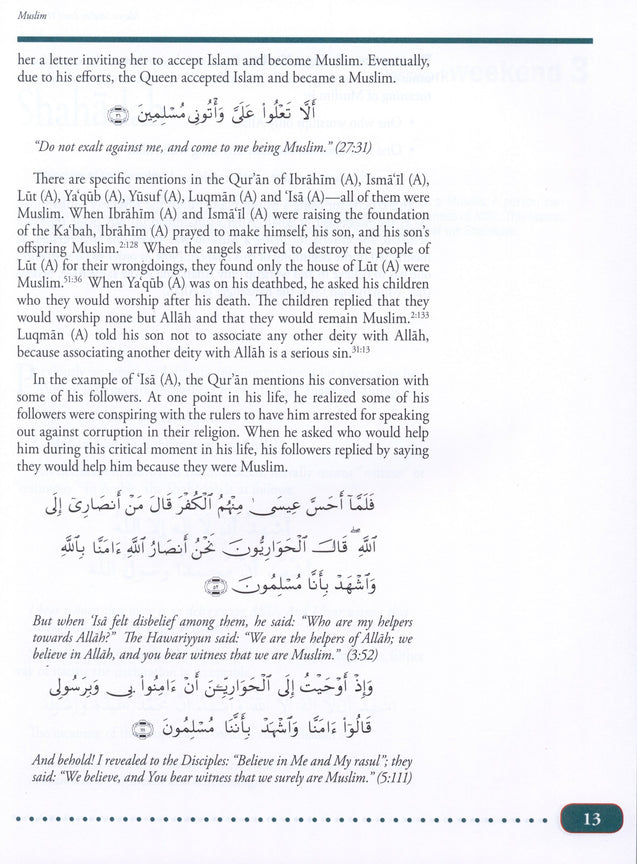 Muslim
her a letter inviting her to accept Islam and become Muslim. Eventually,
due to his efforts, the Queen accepted Islam and became a Muslim.
أَلَّا تَعْلُوا۟ عَلَىَّ وَأْتُونِى مُسْلِمِينَ ﴿٣١﴾
“Do not exalt against me, and come to me being Muslim.” (27:31)
There are specific mentions in the Qur’ān of Ibrāhīm (A), Ismā‘īl (A),
Lūt (A), Ya‘qūb (A), Yūsuf (A), Luqmān (A) and ‘Isā (A)—all of them were
Muslim. When Ibrāhīm (A) and Ismā‘īl (A) were raising the foundation
of the Ka‘bah, Ibrāhīm (A) prayed to make himself, his son, and his son’s
offspring Muslim.2:128 When the angels arrived to destroy the people of
Lūt (A) for their wrongdoings, they found only the house of Lūt (A) were
Muslim.51:36 When Ya‘qūb (A) was on his deathbed, he asked his children
who they would worship after his death. The children replied that they
would worship none but Allāh and that they would remain Muslim.2:133
Luqmān (A) told his son not to associate any other deity with Allāh,
because associating another deity with Allāh is a serious sin.31:13
In the example of ‘Isā (A), the Qur’ān mentions his conversation with
some of his followers. At one point in his life, he realized some of his
followers were conspiring with the rulers to have him arrested for speaking
out against corruption in their religion. When he asked who would help
him during this critical moment in his life, his followers replied by saying
they would help him because they were Muslim.
فَلَمَّآ أَحَسَّ عِيسَىٰ مِنْهُمُ ٱلْكُفْرَ قَالَ مَنْ أَنصَارِىٓ إِلَى
ٱللَّهِ ۖ قَالَ ٱلْحَوَارِيُّونَ نَحْنُ أَنصَارُ ٱللَّهِ ءَامَنَّا بِٱللَّهِ
وَٱشْهَدْ بِأَنَّا مُسْلِمُونَ ﴿٥٢﴾
But when ‘Isā felt disbelief among them, he said: “Who are my helpers
towards Allāh?” The Hawariyyun said: “We are the helpers of Allāh; we
believe in Allāh, and you bear witness that we are Muslim.” (3:52)
وَإِذْ أَوْحَيْتُ إِلَى ٱلْحَوَارِيِّـۧنَ أَنْ ءَامِنُوا۟ بِى وَبِرَسُولِى
قَالُوٓا۟ ءَامَنَّا وَٱشْهَدْ بِأَنَّنَا مُسْلِمُونَ ﴿١١١﴾
And behold! I revealed to the Disciples: “Believe in Me and My rasul”; they
said: “We believe, and You bear witness that we surely are Muslim.” (5:111)
13